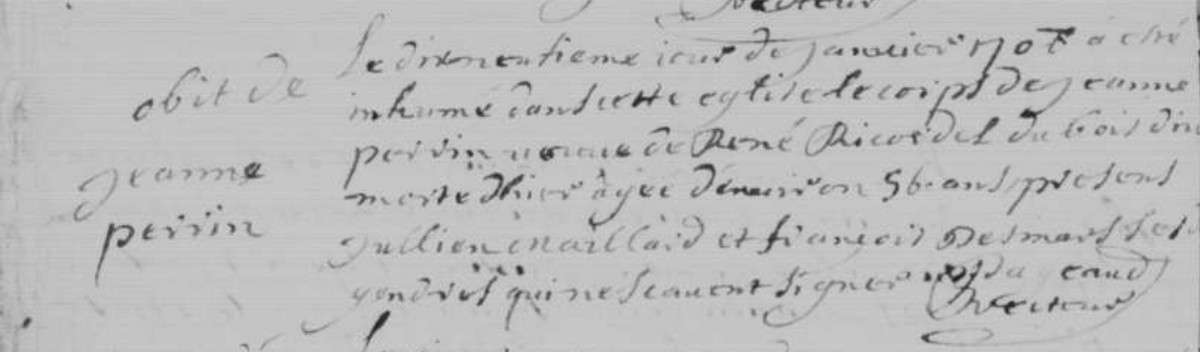 Recteur
obit de
Jeanne
perrin
Le dixneufieme iour de Januier 170 a esté
inhumé dans cette eglise le corps de Jeanne
perrin veuue de René Ricordel du bois
morte dhier agee denuiron 56 ans presens
Jullien maillard et francois Desmars ses
gendres qui ne scauent signer
Recteur